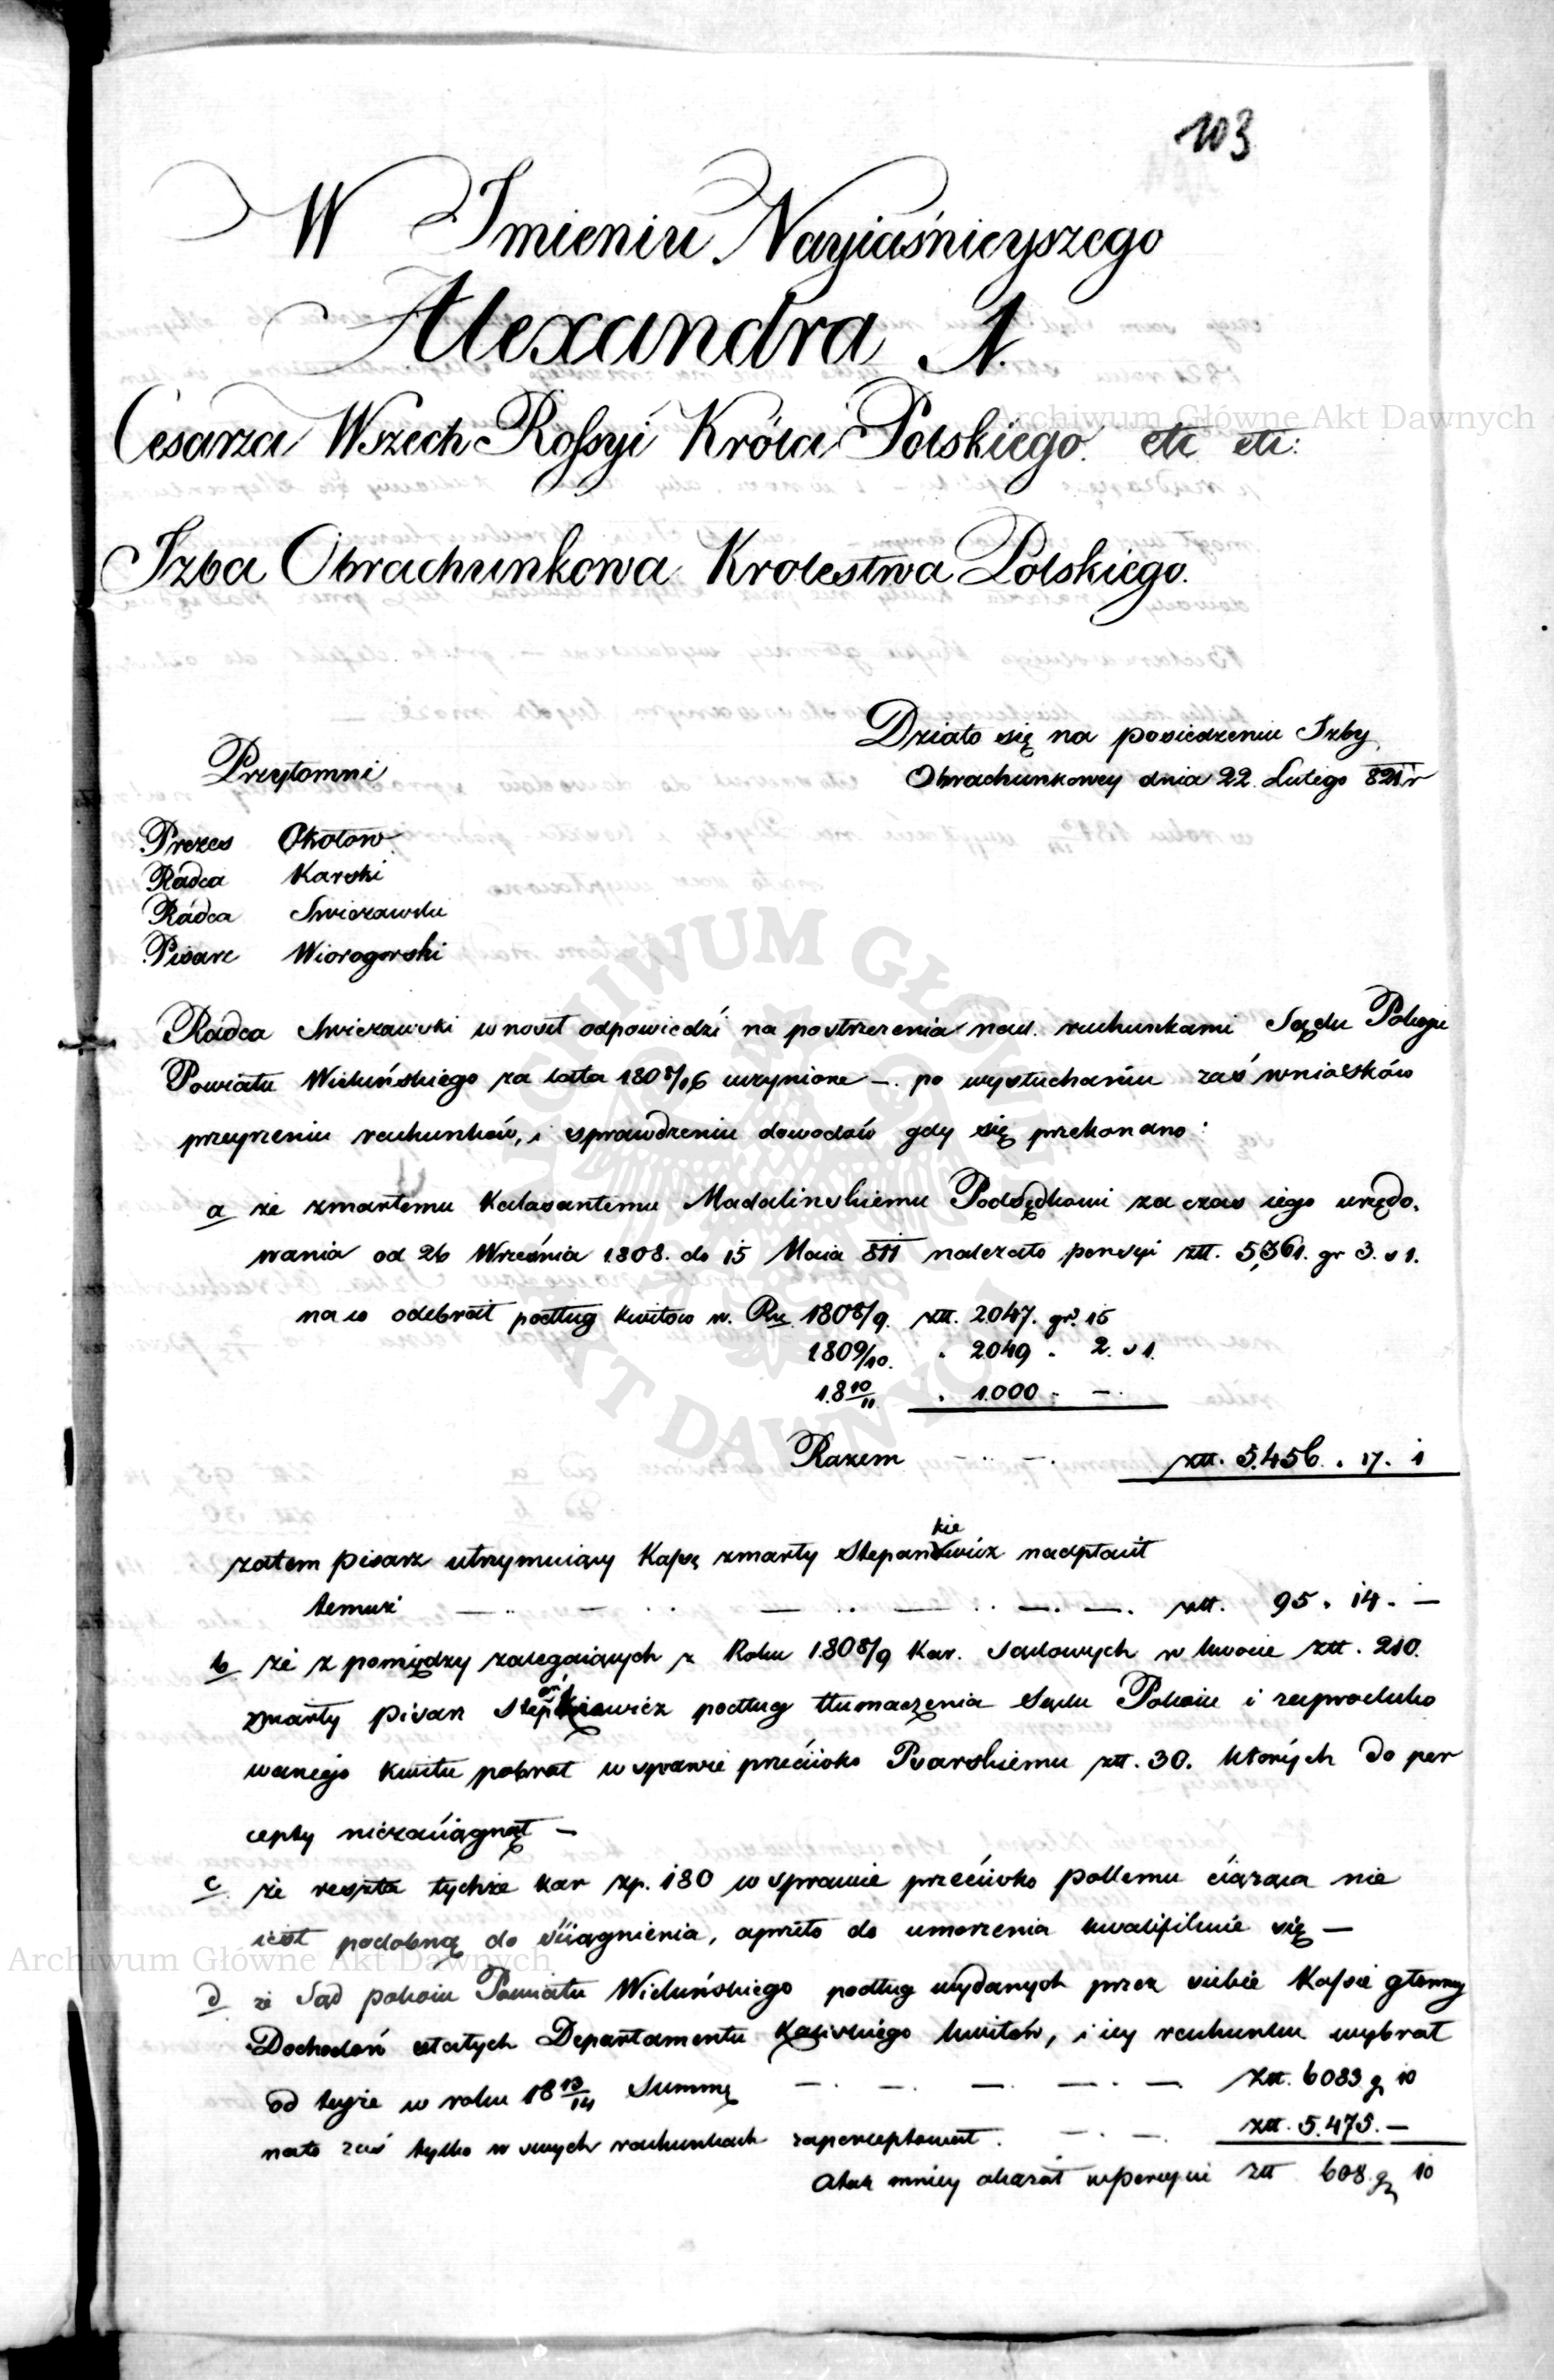 103
W Imieniu Nayiaśnieyszego
Alexandra I.
Cesarza Wszech Rossyi Króla Polskiego etc etc:
Izba Obrachunkowa Krolestwa Polskiego.
Działo się na posiedzeniu Izby
Obrachunkowey dnia 22 Lutego 821 r
Przytomni
Prezes Okołow
Radca Karski
Radca Swierawski
Pisarz Wiorogorski
Radca wnosił odpowiedzi na postrzerzenia nad rachunkami Sądu Pokoju
Powiatu Wieluńskiego za lata 1808/ uczynione – po wysłuchaniu zaś wniosków
przeyrzeniu rachunków, i sprawdzeniu dowodów gdy się przekonano:
a że zmarłemu Kalasantemu Madalinskiemu Podsędkowi za czas iego urzędo.
wania od 26 Września 1808. do 15 Maia 811 należało pensyi złł. 5,361. gr 3. s 1.
na co odebrał podług kwitow w. Ru 1808/9. złł. 2047. gr. 15
1809/10. „ 2049 „ 2. s 1.
18 10/11 „ 1.000 „ –
Razem – .. – . złł. 5.456. „ 17. 1
zatem pisarz utrzymuiący Kassę zmarły Stepankiewicz nadpłacił
temuż – .. – .. – .. – .. – . – . złł. 95. 14. –
b że z pomiędzy zalegaiących z Roku 1808/9 Kar. Sądowych w kwocie złł. 210.
zmarły pisarz Stepankiewicz podług tłumaczenia Sądu Pokoiu i zaproduko
wanego kwitu pobrał w sprawie przeciwko Psarskiemu złł. 30. których do per
cepty niezaciągnął –
c że reszta tychże kar zp. 180 w sprawie przeciwko ciążąca nie
iest podobną do sciągnienia, a przeto do umorzenia kwalifikuie się –
d że Sąd pokoiu Powiatu Wieluńskiego podług wydanych przez siebie Kassie głowney
Dochodów stałych Departamentu Kaliskiego kwitów, i iey rachunku wybrał
od teyże w roku 18 13/14 Summę – . – . – . – . – złł. 6083 g 10
nato zaś tylko w swych rachunkach zaperceptował . – . – . złł. 5.475. –
a tak mniey okazał w percepcie złł 608. g 10
Archiwum Główne Akt Dawnych
Archiwum Główne Akt Dawnych
ARCHIWUM GŁÓWNE AKT DAWNYCH